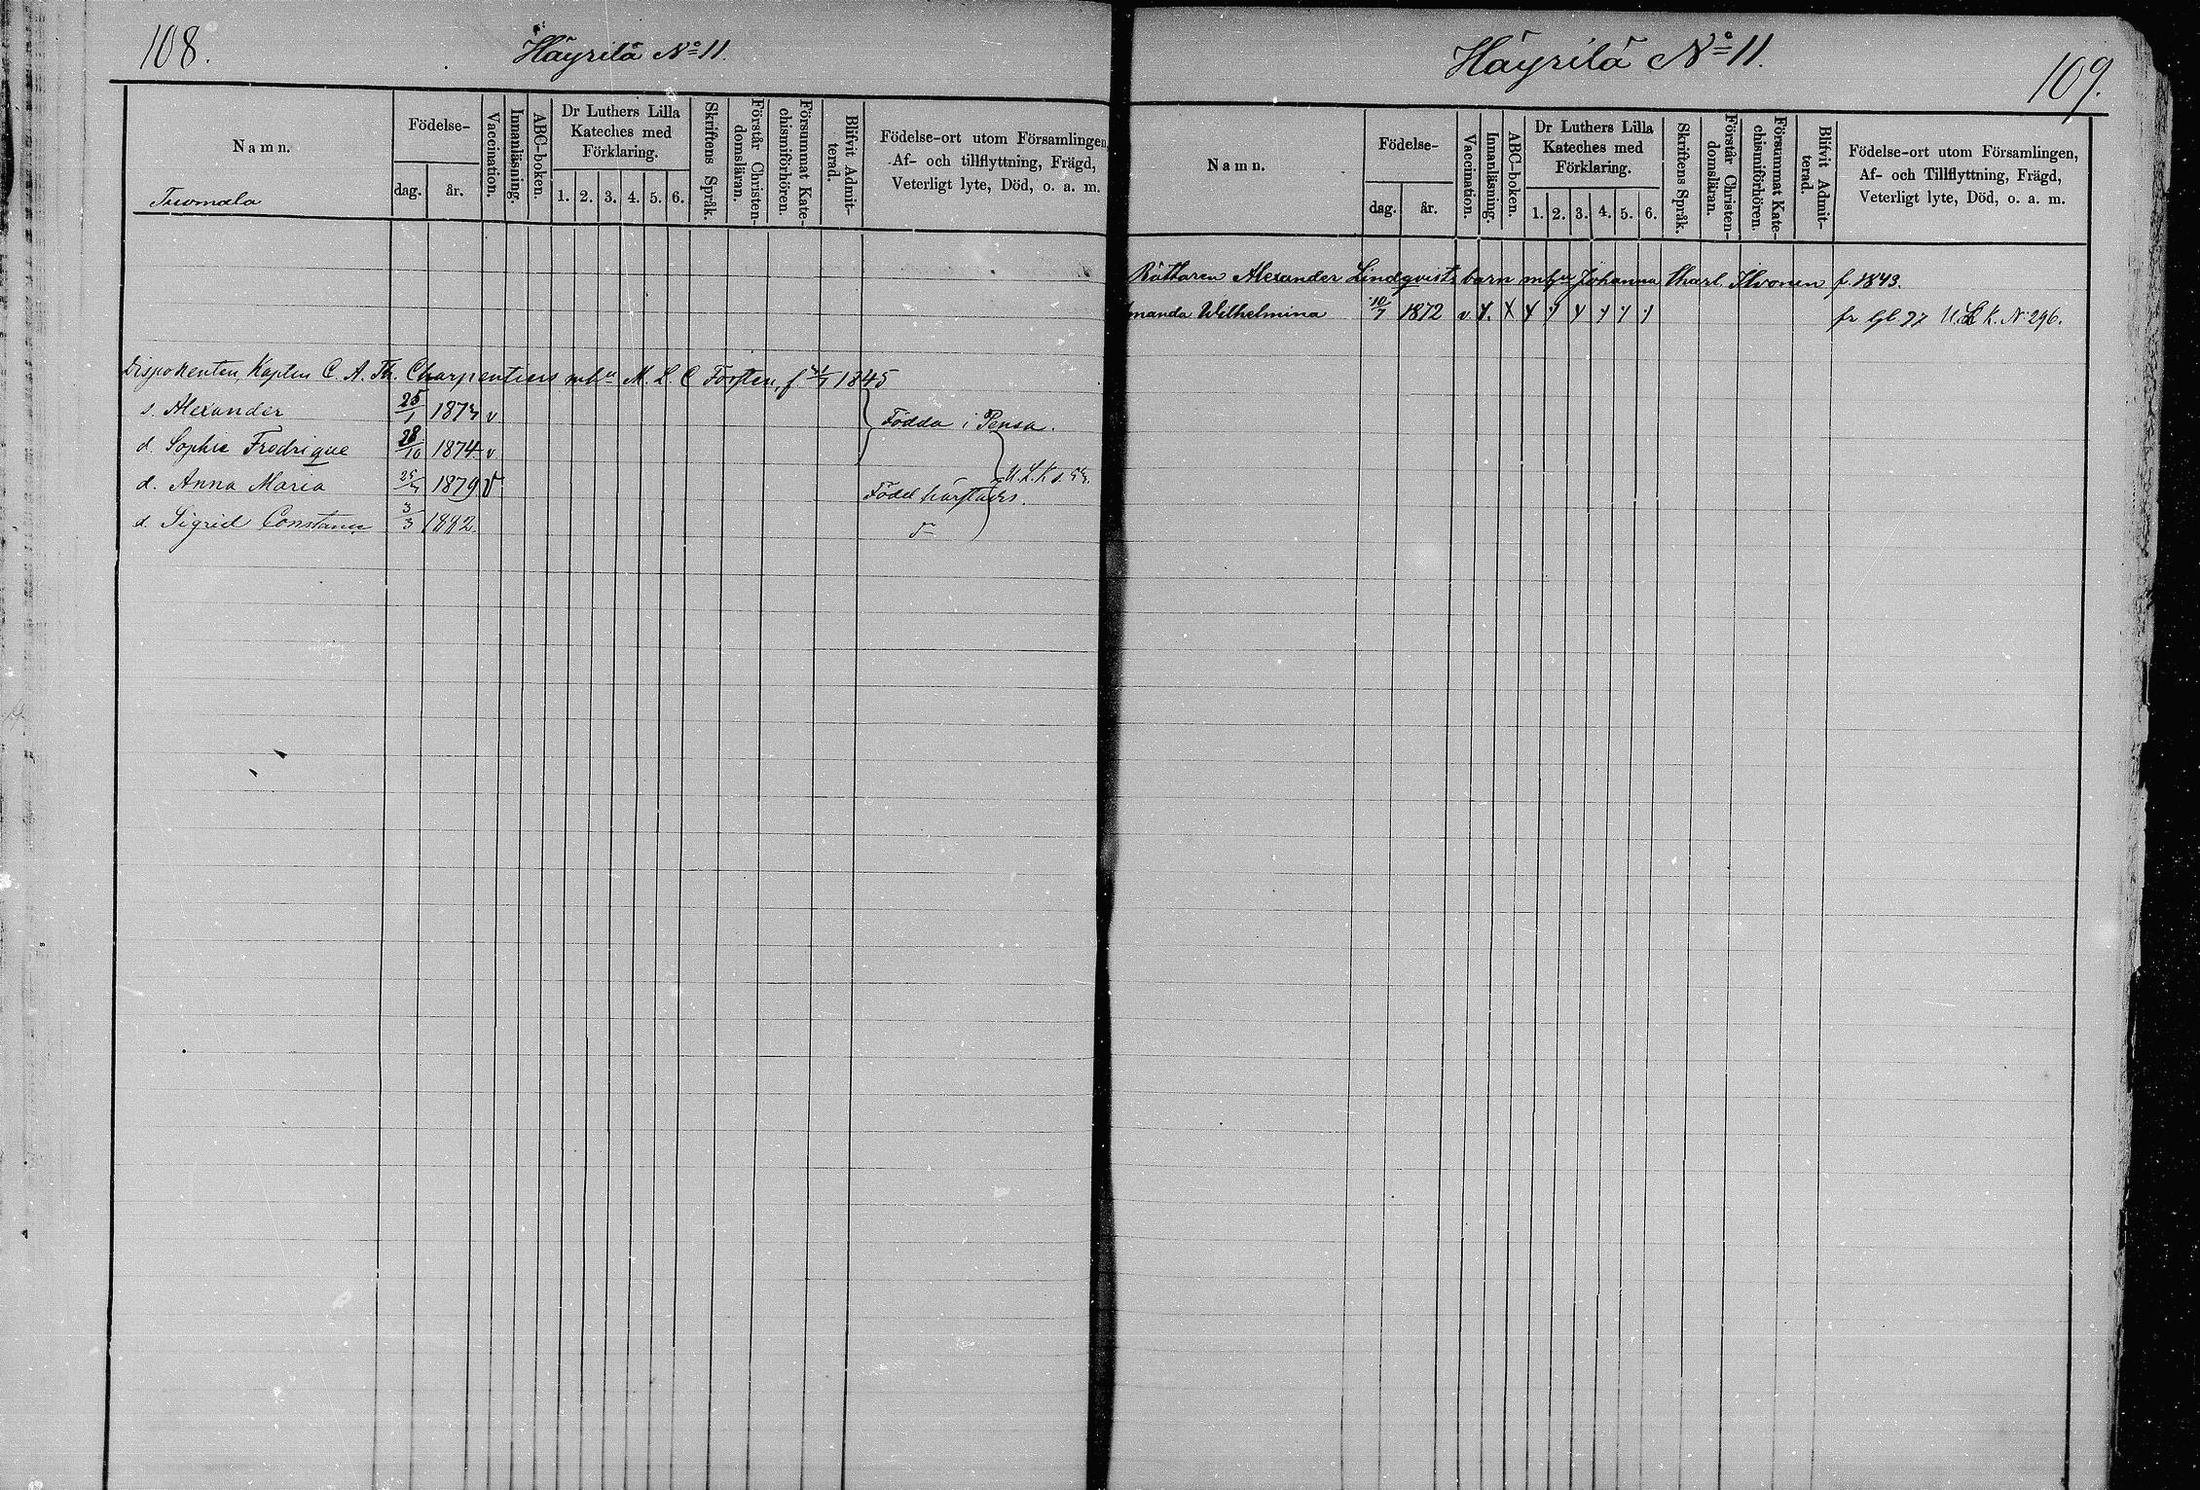 108.
Häyrilä No 11.
Namn.
Födelse-
dag.
år.
Vaccination.
Innanläsning.
ABC-boken.
Dr Luthers Lilla
Kateches med
Förklaring.
1. 2. 3. 4. 5. 6.
Skriftens Språk.
Förstår Christen-
domsläran.
Försummat Kate-
chismiförhören.
Blifvit Admit-
terad.
Födelse-ort utom Församlingen,
Af- och tillflyttning, Frägd,
Veterligt lyte, Död, o. a. m.
Tuomala
Disponenten, Kapten C. A. Th. Charpentiers mhu M. L. C Forsten, f. 1845
s. Alexander 25/1 1873 v
Födda i Pensa.
d. Sophie Fredrique 28/10 1874 v
d. Anna Maria 1879 v
Född härstädes.
d. Sigrid 3/3 1882.
Häyrilä No 11.
109.
Namn.
Födelse-
dag.
år.
Vaccination.
Innanläsning.
ABC-boken.
Dr Luthers Lilla
Kateches med
Förklaring.
1. 2. 3. 4. 5. 6.
Skriftens Språk.
Förstår Christen-
domsläran.
Försummat Kate-
chismiförhören.
Blifvit Admit-
terad.
Födelse-ort utom Församlingen,
Af- och Tillflyttning, Frägd,
Veterligt lyte, Död, o. a. m.
Rättaren Alexander Lindqvists barn mhu Johanna Charl. Ilvonen f. 1843.
manda Wilhelmina 10/7 1872 v fr gl. 77 U. L. K. No 296.